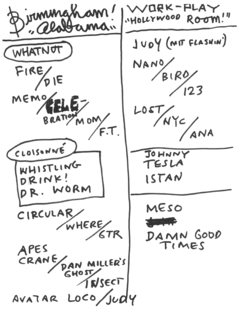 Birmingham!
"Alabama!"
WHATNOT
FIRE/
DIE
MEMO/CELE-
BRATION/MOM/
F.T.
CLOISONNÉ
WHISTLING
DRINK!
DR. WORM
CIRCULAR/
WHERE/
STR
APES
CRANE/DAN MILLER'S
GHOST/
INSECT
AVATAR LOCO/JUDY
WORK-PLAY
"HOLLYWOOD ROOM!"
JUDY (MIT FLASHIN)
NANO/
BIRD/
123
LOST/
NYC/
ANA
JOHNNY
TESLA
ISTAN
MESO
DAMN GOOD
TIMES